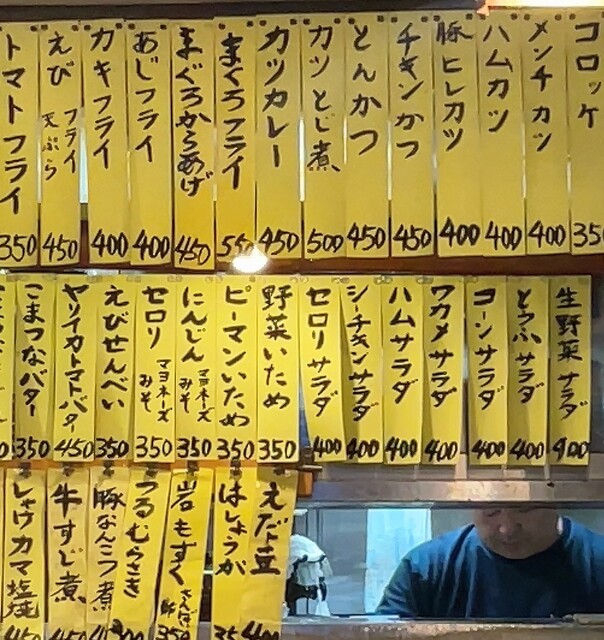 コロッケ 350
メンチカツ 400
ハムカツ 400
豚ヒレカツ 400
チキンかつ 450
とんかつ 450
カツとじ煮 500
カツカレー 450
まぐろフライ 550
まぐろからあげ 450
あじフライ 400
カキフライ 400
えび フライ 天ぷら 450
トマトフライ 350
生野菜サラダ 400
とうふサラダ 400
コーンサラダ 400
ワカメサラダ 400
ハムサラダ 400
シーチキンサラダ 400
セロリサラダ 400
野菜いため 350
ピーマンいため 350
にんじん マヨネーズ みそ 350
セロリ マヨネーズ みそ 350
えびせんべい 350
ヤリイカトマトバター 450
こまつなバター 350
えだ豆 400
はしょうが 35
岩もずく さんばい酢 350
つるむらさき
豚なんこつ煮
牛すじ煮 450
しゃけカマ塩焼 450